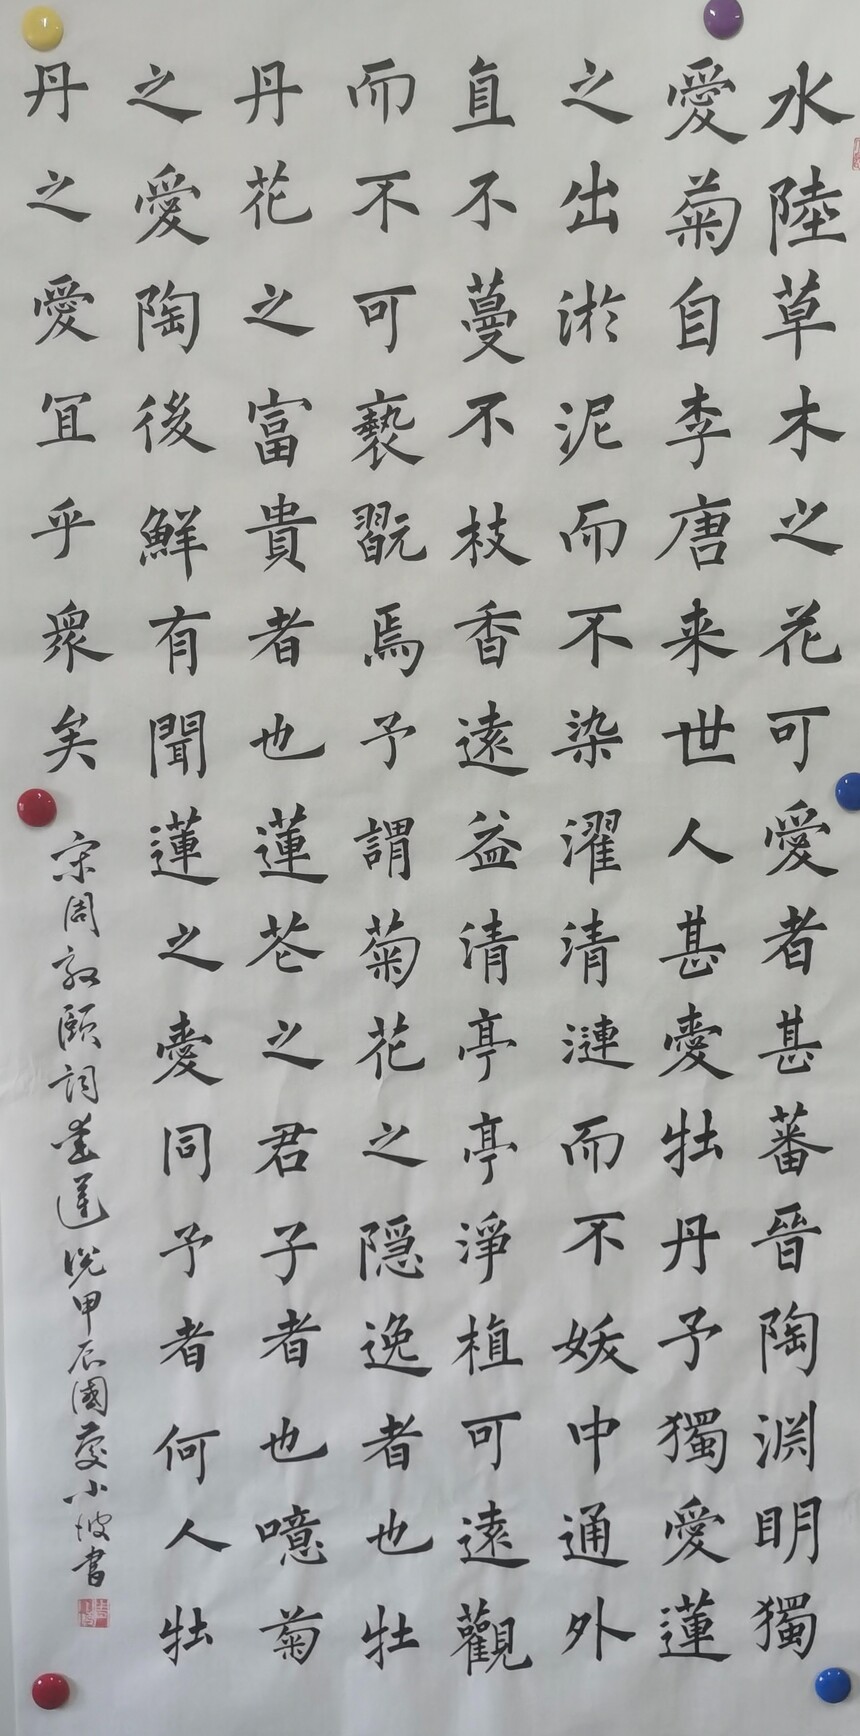 水陸草木之花可愛者甚蕃晉陶渕明獨
愛菊自李唐来世人甚愛牡丹予獨愛蓮
之出淤泥而不染濯清漣而不妖中通外
直不蔓不枝香遠益清亭亭淨植可遠觀
而不可褻翫焉予謂菊花之隠逸者也牡
丹花之富貴者也蓮花之君子者也噫菊
之愛陶後鮮有聞蓮之愛同予者何人牡
丹之愛宜乎衆矣
宋周敦頤詞愛蓮説甲辰國慶小波書